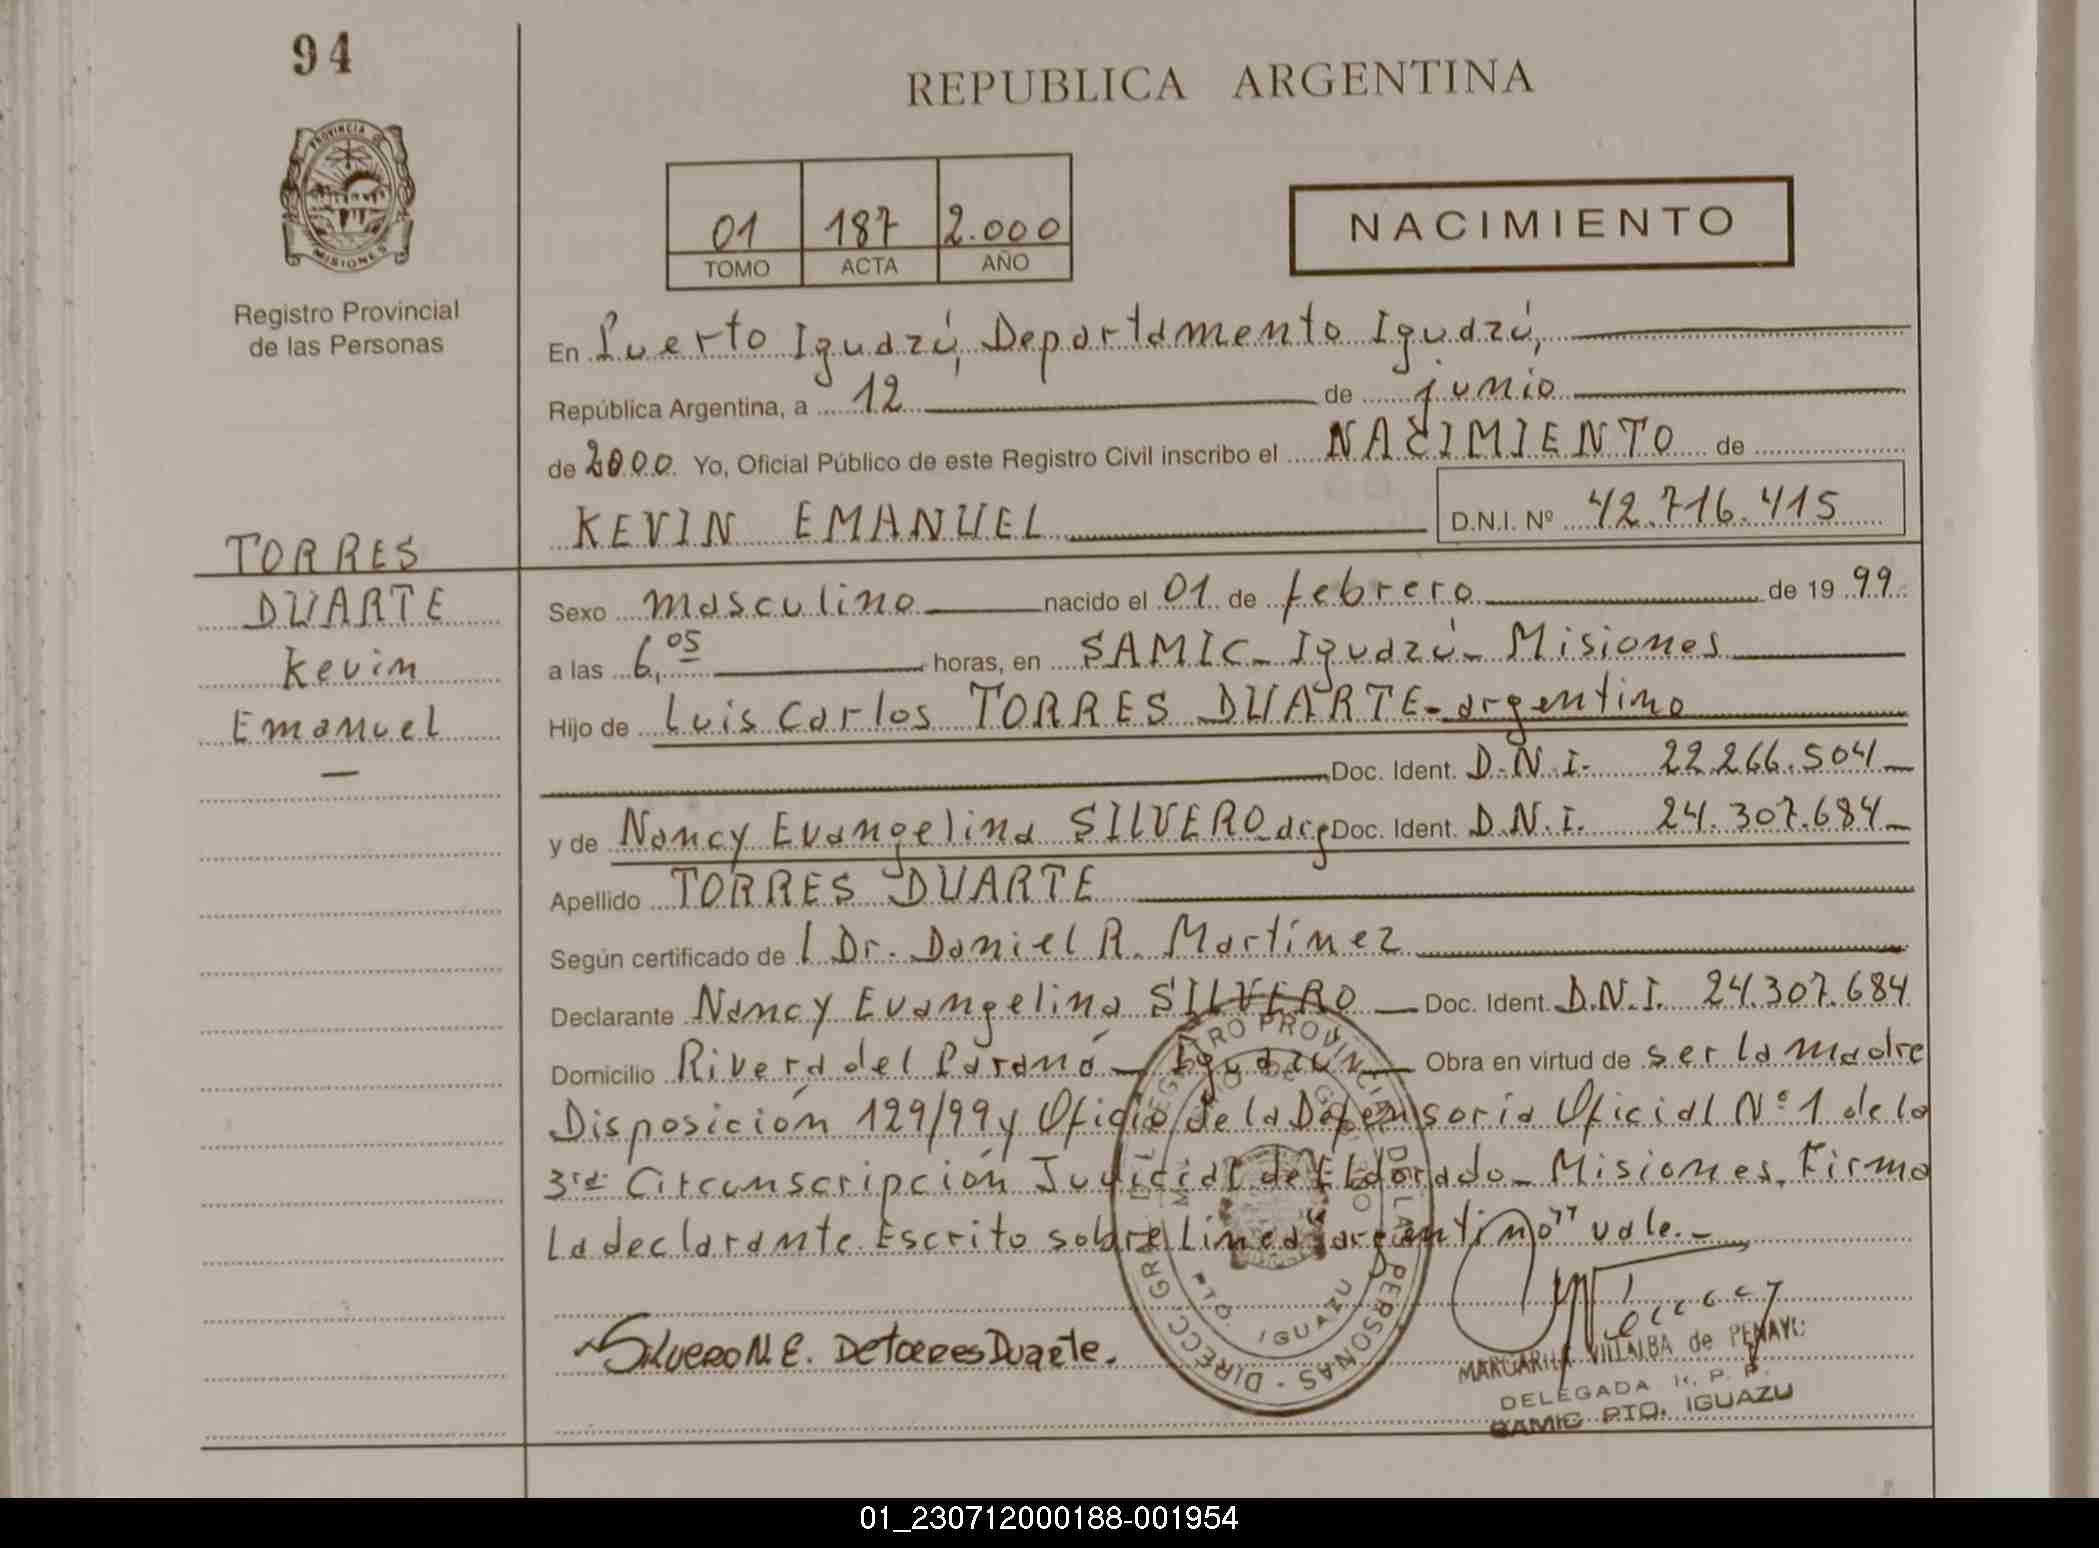 94
REPUBLICA ARGENTINA
PROVINCIA DE
MISIONES
Registro Provincial
de las Personas
01 187 2.000
TOMO ACTA AÑO
NACIMIENTO
En Puerto Iguazú, Departamento Iguazú,
República Argentina, a 12 de junio
de 2000. Yo, Oficial Público de este Registro Civil inscribo el NACIMIENTO de
KEVIN EMANUEL D.N.I. Nº 42.716.415
TORRES
DUARTE
Kevin
Emanuel
Sexo masculino nacido el 01 de febrero de 1999
a las 6,05 horas, en SAMIC - Iguazú - Misiones
Hijo de Luis Carlos TORRES DUARTE - argentino
Doc. Ident. D.N.I. 22.266.504
y de Nancy Evangelina SILVERO arg Doc. Ident. D.N.I. 24.307.684
Apellido TORRES DUARTE
Según certificado de l Dr. Daniel R. Martínez
Declarante Nancy Evangelina SILVERO Doc. Ident. D.N.I. 24.307.684
Domicilio Rivera del Paraná - Iguazú Obra en virtud de ser la madre
Disposición 129/99 y Oficio de la Defensoría Oficial Nº 1 de la
3ra Circunscripción Judicial de Eldorado - Misiones. Firma
la declarante. Escrito sobre línea "argentino" vale.-
Silvero N. E. De Torres Duarte.
DIRECC. GRAL. DEL REGISTRO PROVINCIAL DE LAS PERSONAS
IGUAZU
MARGARITA VILLALBA de PENAYO
DELEGADA R. P. P.
SAMIC PTO. IGUAZU
01_230712000188-001954